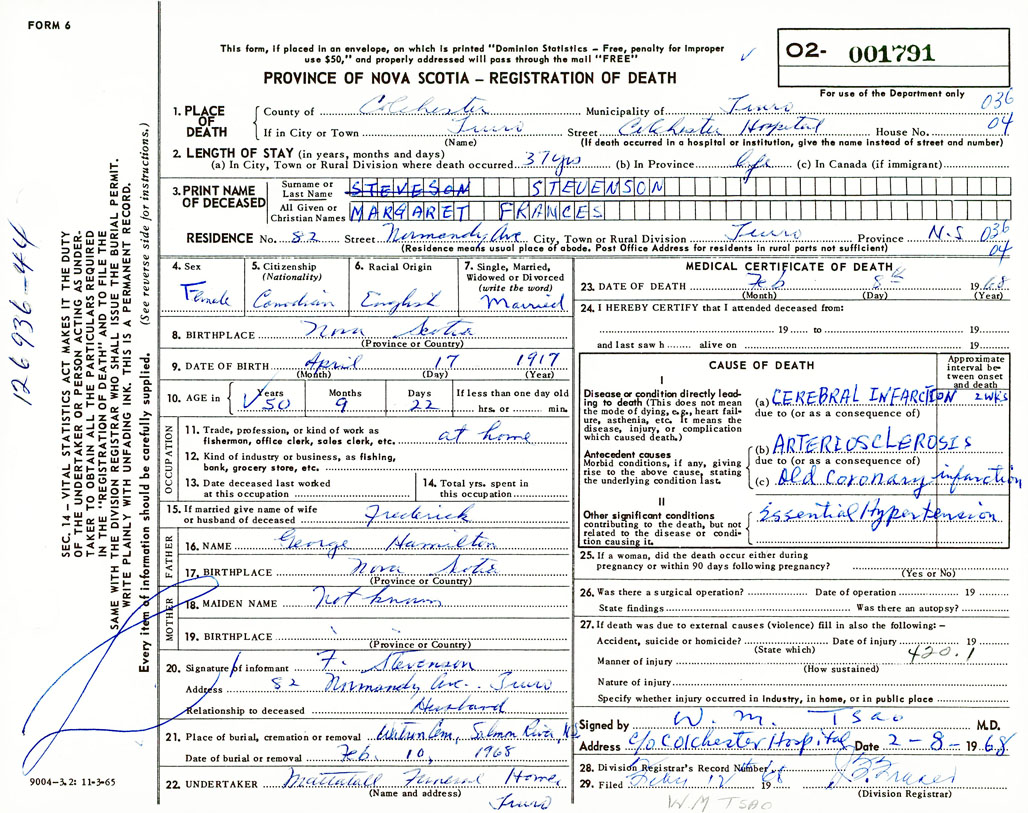 FORM 6
This form, if placed in an envelope, on which is printed "Dominion Statistics – Free, penalty for improper
use $50," and properly addressed will pass through the mail "FREE"
02- 001791
PROVINCE OF NOVA SCOTIA – REGISTRATION OF DEATH
For use of the Department only
036
04
1. PLACE OF DEATH
County of Colchester Municipality of Truro
If in City or Town Truro Street Colchester Hospital House No.
(Name) (If death occurred in a hospital or institution, give the name instead of street and number)
2. LENGTH OF STAY (in years, months and days)
(a) In City, Town or Rural Division where death occurred 37 yrs (b) In Province Life (c) In Canada (if immigrant)
3. PRINT NAME OF DECEASED
Surname or Last Name STEVESON STEVENSON
All Given or Christian Names MARGARET FRANCES
RESIDENCE No. 82 Street Normandy Ave City, Town or Rural Division Truro Province N.S 036
04
(Residence means usual place of abode. Post Office Address for residents in rural parts not sufficient)
4. Sex
Female
5. Citizenship
(Nationality)
Canadian
6. Racial Origin
English
7. Single, Married,
Widowed or Divorced
(write the word)
Married
8. BIRTHPLACE Nova Scotia
(Province or Country)
9. DATE OF BIRTH April 17 1917
(Month) (Day) (Year)
10. AGE in
Years Months Days If less than one day old
50 9 22 hrs. or min.
OCCUPATION
11. Trade, profession, or kind of work as
fishermen, office clerk, sales clerk, etc. at home
12. Kind of industry or business, as fishing,
bank, grocery store, etc.
13. Date deceased last worked
at this occupation
14. Total yrs. spent in
this occupation
15. If married give name of wife
or husband of deceased Frederick
FATHER
16. NAME George Hamilton
17. BIRTHPLACE Nova Scotia
(Province or Country)
MOTHER
18. MAIDEN NAME Not known
19. BIRTHPLACE
(Province or Country)
20. Signature of informant F. Stevenson
Address 82 Normandy Ave. Truro
Relationship to deceased Husband
21. Place of burial, cremation or removal Cem, Salmon River, N.S
Date of burial or removal Feb. 10, 1968
22. UNDERTAKER Mattatall Funeral Home
(Name and address)
Truro
MEDICAL CERTIFICATE OF DEATH
23. DATE OF DEATH Feb 8th 1968
(Month) (Day) (Year)
24. I HEREBY CERTIFY that I attended deceased from:
19 to 19
and last saw h alive on 19
CAUSE OF DEATH
Approximate
interval be-
tween onset
and death
I
Disease or condition directly lead-
ing to death (This does not mean
the mode of dying, e.g., heart fail-
ure, asthenia, etc. It means the
disease, injury, or complication
which caused death.)
(a) CEREBRAL INFARCTION 2 WKS
due to (or as a consequence of)
Antecedent causes
Morbid conditions, if any, giving
rise to the above cause, stating
the underlying condition last.
(b) ARTERIOSCLEROSIS
due to (or as a consequence of)
(c) Old Coronary infarction
II
Other significant conditions
contributing to the death, but not
related to the disease or condi-
tion causing it.
Essential Hypertension
25. If a woman, did the death occur either during
pregnancy or within 90 days following pregnancy?
(Yes or No)
26. Was there a surgical operation? Date of operation 19
State findings Was there an autopsy?
27. If death was due to external causes (violence) fill in also the following: –
Accident, suicide or homicide? Date of injury 19
(State which)
420.1
Manner of injury
(How sustained)
Nature of injury
Specify whether injury occurred in industry, in home, or in public place
Signed by W. M. Tsao M.D.
Address c/o Colchester Hospital Date 2-8-1968
28. Division Registrar's Record Number
29. Filed 12 1968
(Division Registrar)
W.M TSAO
9004-3.2: 11-3-65
126936-44
SEC. 14 – VITAL STATISTICS ACT MAKES IT THE DUTY
OF THE UNDERTAKER OR PERSON ACTING AS UNDER-
TAKER TO OBTAIN ALL THE PARTICULARS REQUIRED
IN THE "REGISTRATION OF DEATH" AND TO FILE THE
SAME WITH THE DIVISION REGISTRAR WHO SHALL ISSUE THE BURIAL PERMIT.
WRITE PLAINLY WITH UNFADING INK. THIS IS A PERMANENT RECORD.
Every item of information should be carefully supplied. (See reverse side for instructions.)